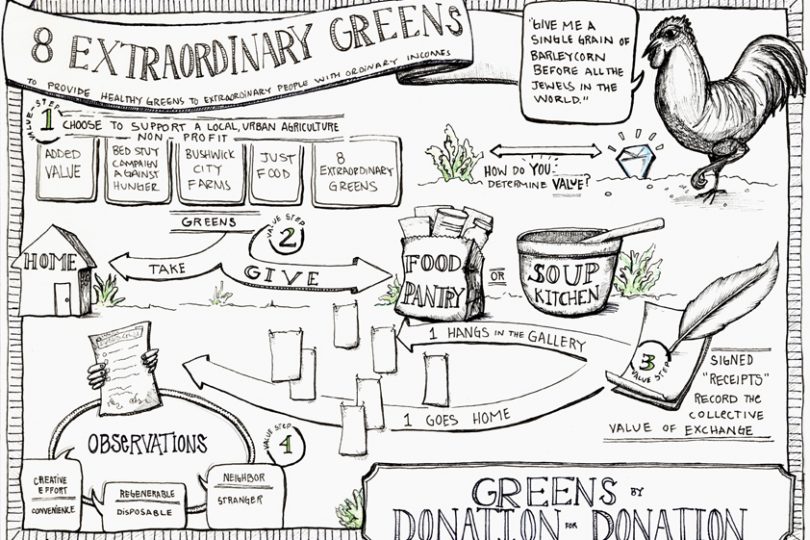 8 EXTRAORDINARY GREENS
TO PROVIDE HEALTHY GREENS TO EXTRAORDINARY PEOPLE WITH ORDINARY INCOMES
"GIVE ME A
SINGLE GRAIN OF
BARLEYCORN
BEFORE ALL THE
JEWELS IN THE
WORLD."
VALUE-STEP
1 CHOOSE TO SUPPORT A LOCAL, URBAN AGRICULTURE
NON-PROFIT
ADDED
VALUE
BED STUY
CAMPAIGN
AGAINST
HUNGER
BUSHWICK
CITY
FARMS
JUST
FOOD
8
EXTRAORDINARY
GREENS
HOW DO YOU
DETERMINE VALUE?
GREENS
VALUE STEP
2
HOME
TAKE
GIVE
FOOD
PANTRY
OR
SOUP
KITCHEN
1 HANGS IN THE GALLERY
1 GOES HOME
3
VALUE STEP
SIGNED
"RECEIPTS"
RECORD THE
COLLECTIVE
VALUE OF EXCHANGE
OBSERVATIONS
VALUE STEP
4
CREATIVE
EFFORT
CONVENIENCE
REGENERABLE
DISPOSABLE
NEIGHBOR
STRANGER
GREENS BY
DONATION FOR DONATION